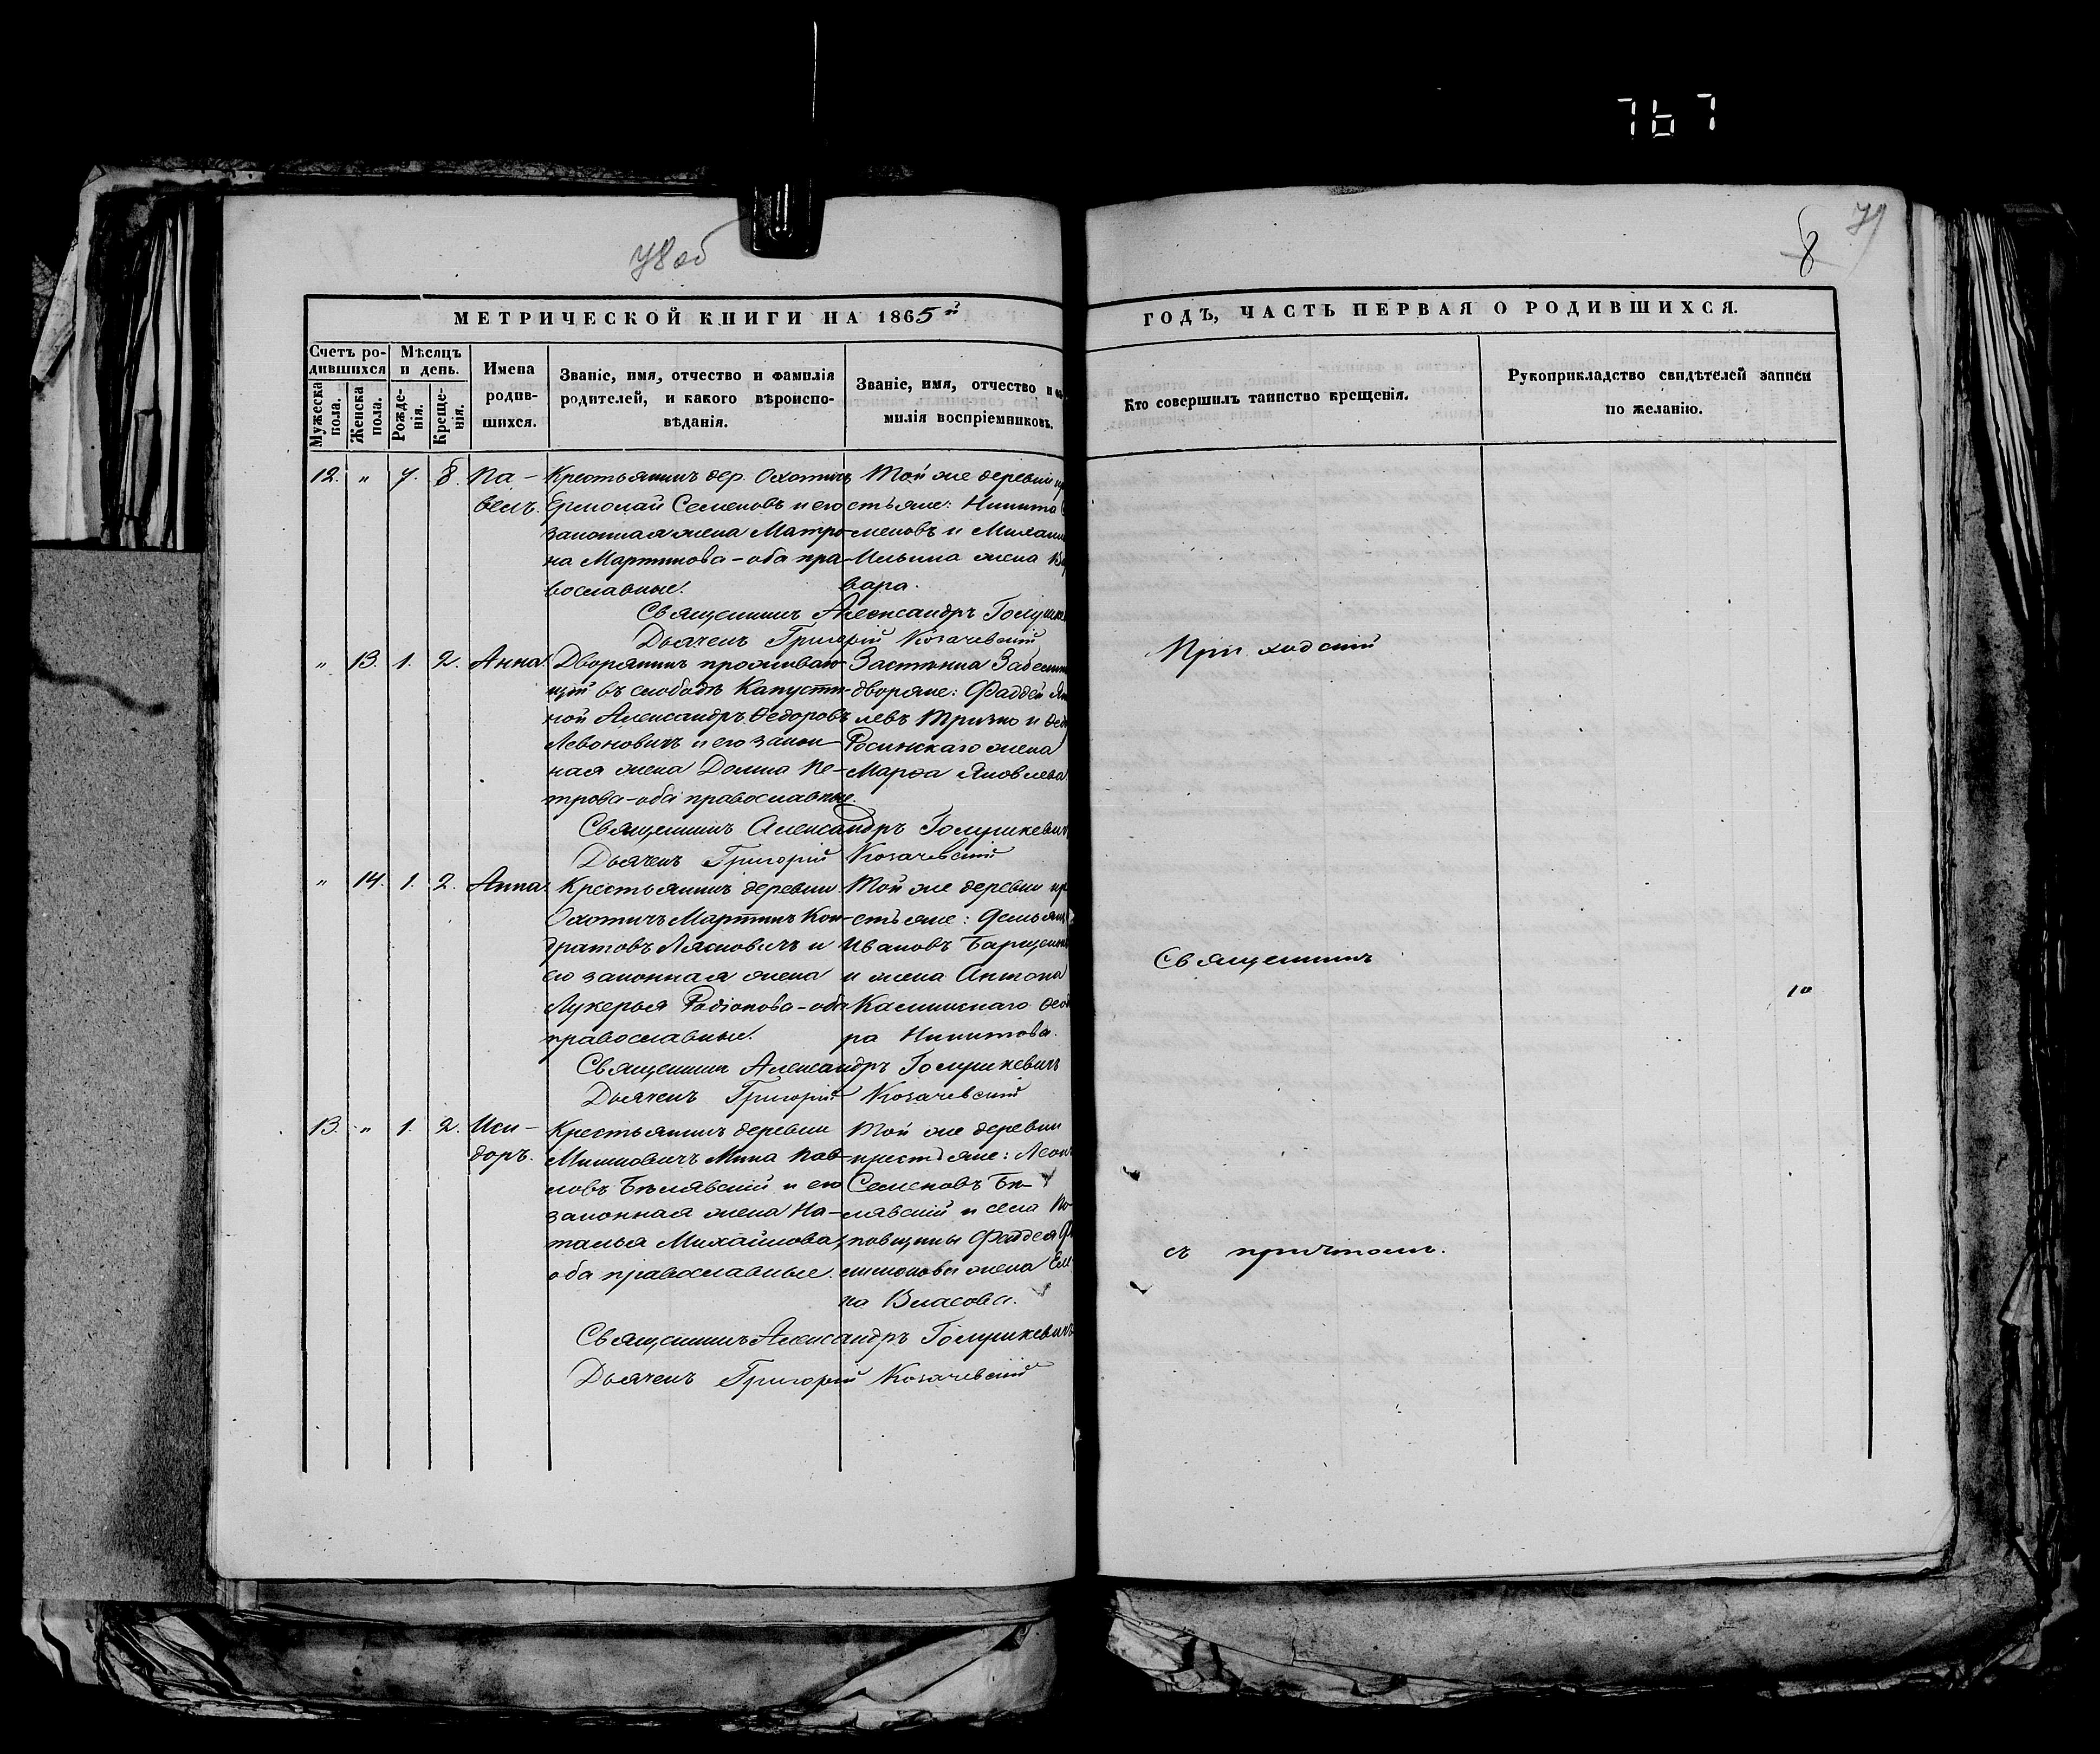 767
78 об
79
8
МЕТРИЧЕСКОЙ КНИГИ НА 1865й
ГОДЪ, ЧАСТЬ ПЕРВАЯ О РОДИВШИХСЯ.
Счетъ родившихся
Мужеска пола.
Женска пола.
Мѣсяцъ и день.
Рожденія.
Крещенія.
Имена родившихся.
Званіе, имя, отчество и фамилія родителей, и какого вѣроисповѣданія.
Званіе, имя, отчество и фамилія воспріемниковъ.
Кто совершилъ таинство крещенія.
Рукоприкладство свидѣтелей записи по желанію.
12. " 7. 8. Па-
велъ.
Крестьянинъ дер. Охотичъ
Ермолай Семеновъ и его
законная жена Матро-
на Мартинова - оба пра-
вославные.
Той же деревни кр
стьяне: Никита
меновъ и Михаил
Ильина жена Ва
вара.
Священникъ Александръ Голушке
Дьячекъ Григорій Козачевскій
" 13. 1. 2. Анна.
Дворянинъ проживаю-
щій въ слободѣ Капусти-
ной Александръ Ѳедоровъ
Левоновичъ и его закон
ная жена Домна Пе-
трова - оба православные.
Застѣнка
дворяне: Фаддей
левъ Тризно и Ѳед
жена
Марѳа Яковлева
Священникъ Александръ Голушкевич
Дьячекъ Григорій Козачевскій
" 14. 1. 2. Анна.
Крестьянинъ деревни
Охотичъ Мартинъ Кон-
дратовъ Ляхновичъ и
его законная жена
Лукерья Родіонова - оба
православные.
Той же деревни кр
стьяне: Демьянъ
Ивановъ
и жена Антона
Калинскаго Ѳеод
ра Никитова.
Священникъ Александръ Голушкевичъ
Дьячекъ Григорій Козачевскій
13. " 1. 2. Иси-
доръ.
Крестьянинъ деревни
Мишковичъ Мина Пав-
ловъ Бѣлявскій и его
законная жена На-
талья Михайлова,
оба православные.
Той же деревни
крестьяне: Леон
Семеновъ Бѣ-
лявскій и села По-
повщины Фаддея Фи
лимонова жена Еле
на Власова.
Священникъ Александръ Голушкевичъ
Дьячекъ Григорій Козачевскій
Приходскій
Священникъ
10
съ причтомъ.